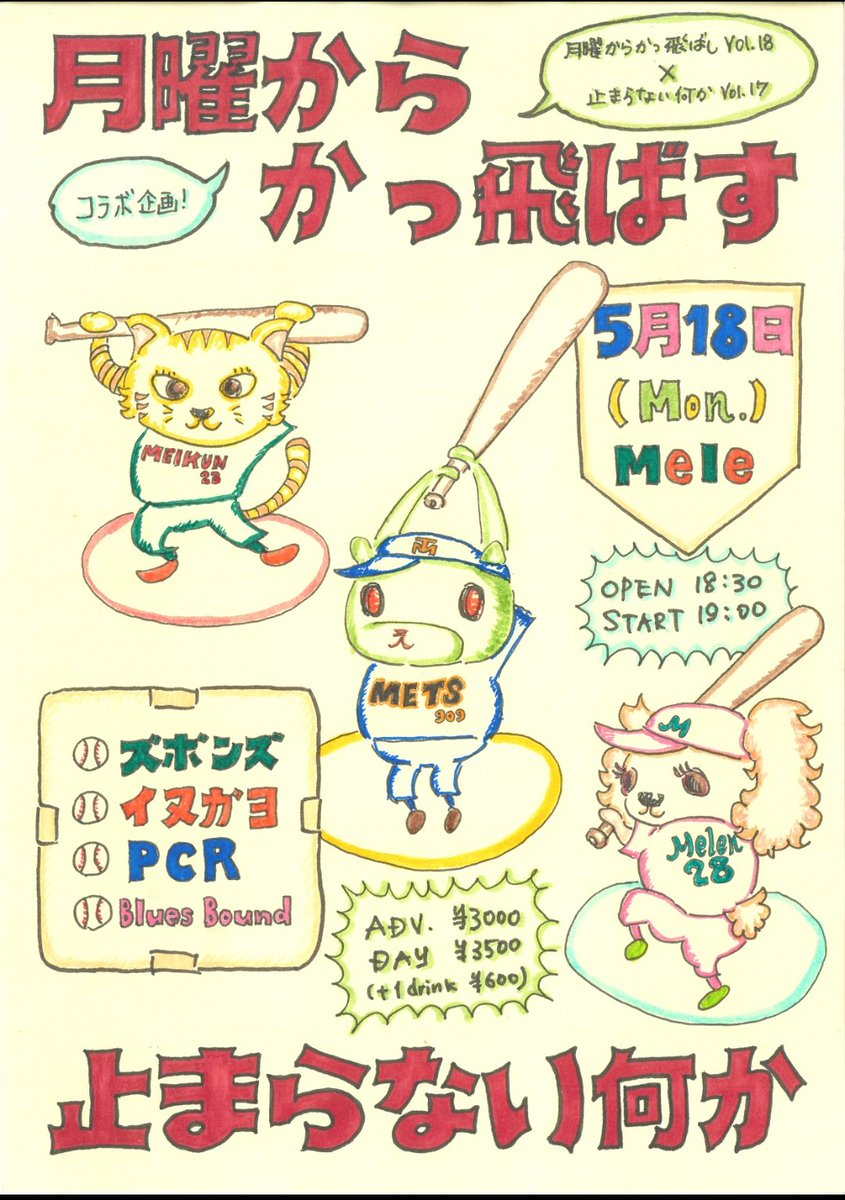 月曜から
かっ飛ばす
月曜からかっ飛ばし Vol.18
×
止まらない何か Vol.17
コラボ企画!
5月18日
(Mon.)
Mele
MEIKUN
23
TM
OPEN 18:30
START 19:00
METS
909
M
Melen
28
ズボンズ
イヌガヨ
PCR
Blues Bound
ADV. ¥3000
DAY ¥3500
(+1drink ¥600)
止まらない何か